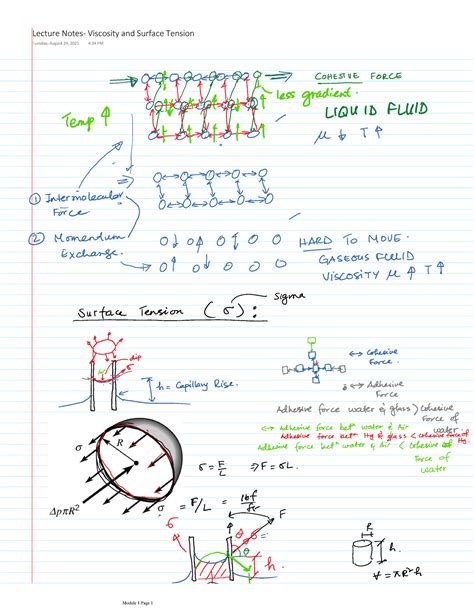 Lecture Notes- Viscosity and Surface Tension
Tuesday, August 24, 2021 4:34 PM
COHESIVE FORCE
less gradient.
LIQUID FLUID
Temp ↑
μ ↓ T ↑
① Intermolecular
Force
② Momentum
Exchange.
HARD TO MOVE.
GASEOUS FLUID
VISCOSITY μ ↑ T ↑
Surface Tension (σ):
sigma
dip
σ
h = Capillary Rise.
↔ Cohesive
Force.
↔ Adhesive
Force
Adhesive force water & glass > Cohesive
Force of
water
↔ Adhesive force betn water & Air
Adhesive force betn Hg & glass < cohesive force of
Hg.
Adhesive force betn water & Air < Cohesive
Force of
water
R
σ
σ
ΔpπR²
σ = F/L ⇒ F = σL.
= F/L = lbf/ft
σ
F
θ
θ
h
R
h.
∀ = πR²h
Module 1 Page 1